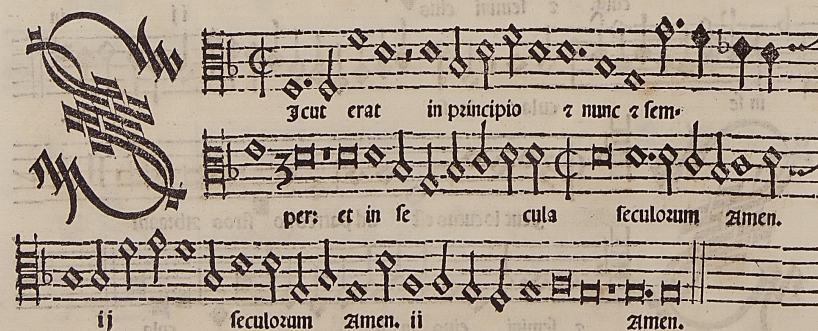 Sicut erat in principio ⁊ nunc ⁊ sem-
per: et in se cula seculorum Amen.
ij seculorum Amen. ii Amen.